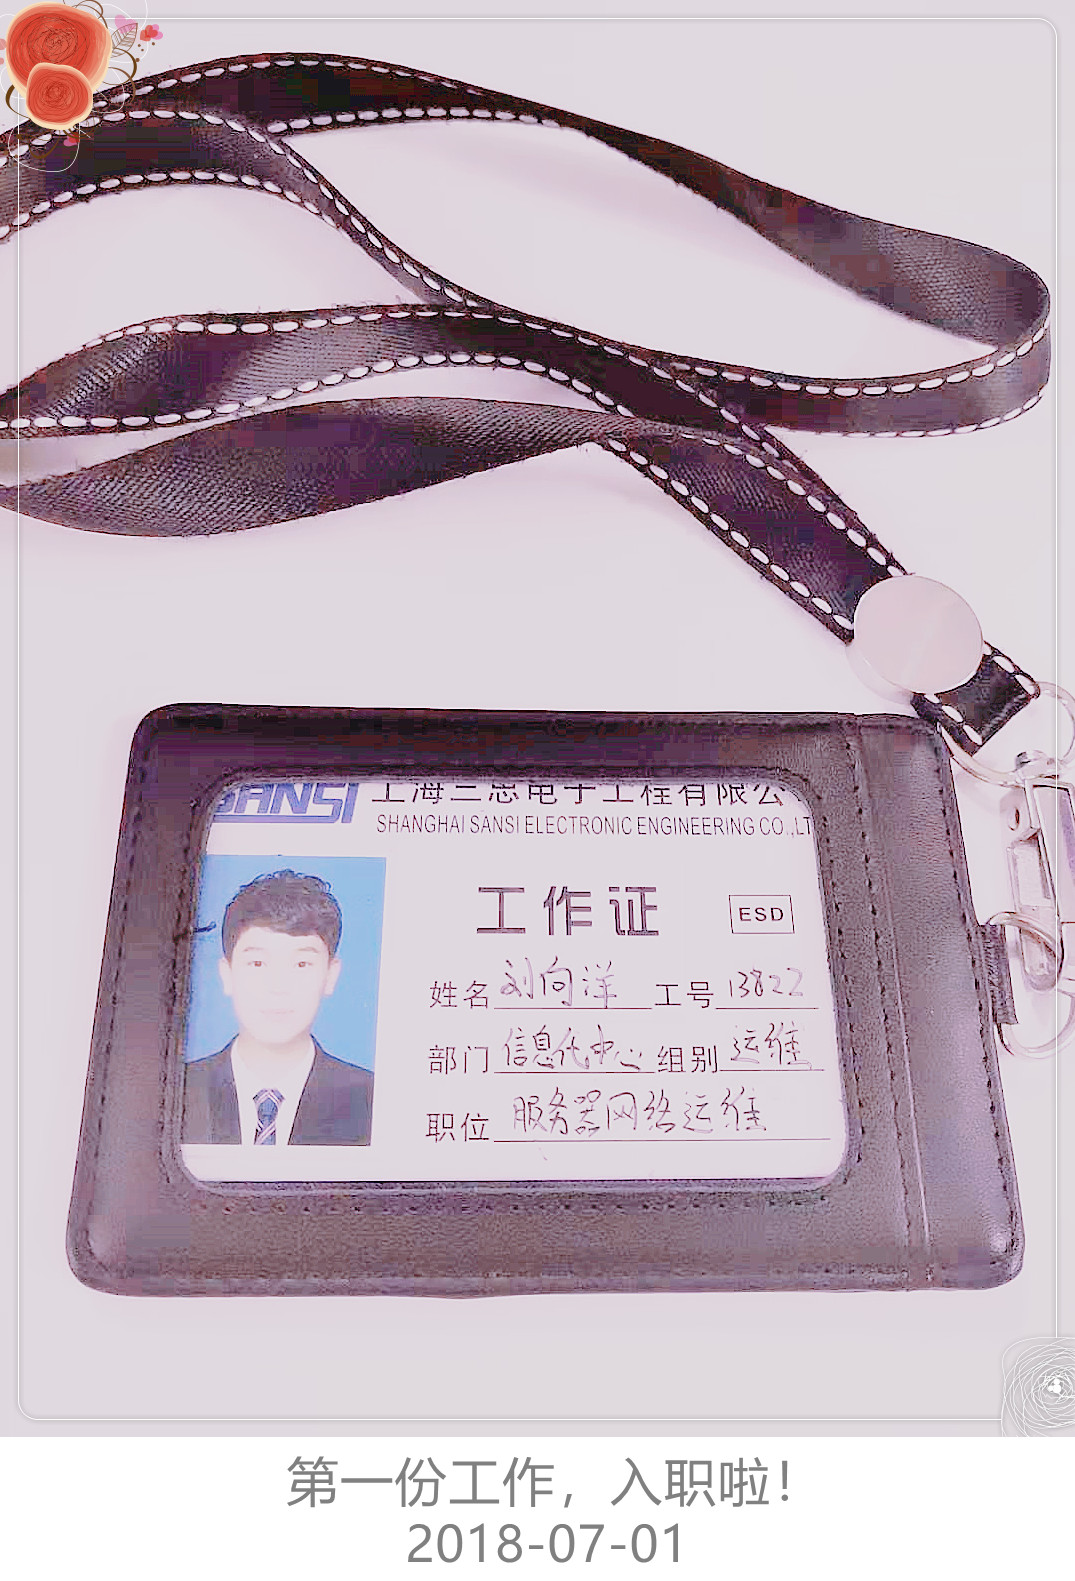 SANSI 上海三思电子工程有限公
SHANGHAI SANSI ELECTRONIC ENGINEERING CO.,LT
工作证 ESD
姓名 刘向洋 工号 13822
部门 信息化中心 组别 运维
职位 服务器网络运维
第一份工作，入职啦！
2018-07-01